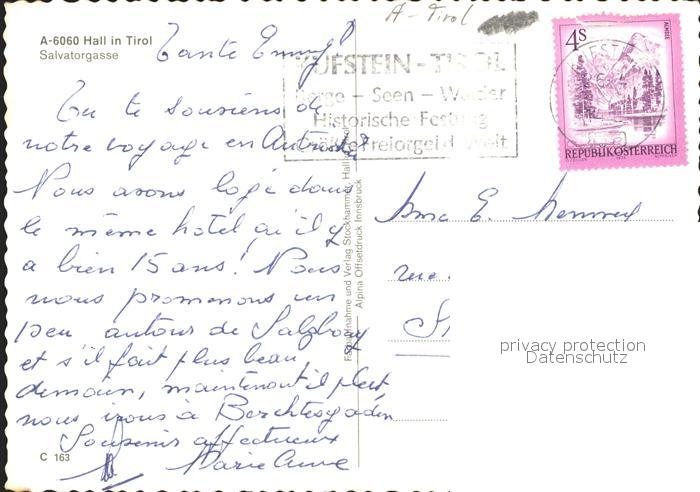 A-Tirol
A-6060 Hall in Tirol
Salvatorgasse
Tante Emmy!
Tu te souviens de
notre voyage en Autriche?
Nous avons logé dans
le même hotel qu'il y
a bien 15 ans! Nous
nous promenons un
peu autour de Salzbourg
et s'il fait plus beau
demain, maintenant il pleut,
nous irons à Berchtesgaden
Souvenir affectueux
Marie Anne
C 163
KUFSTEIN - TIROL
Berge - Seen - Wälder
Historische Festung
Freiorgel d. Welt
4S
ALMSEE
REPUBLIK ÖSTERREICH
Farbaufnahme und Verlag Stockhammer, Hall in Tirol
Alpina Offsetdruck Innsbruck
Mme E.
rue
privacy protection
Datenschutz